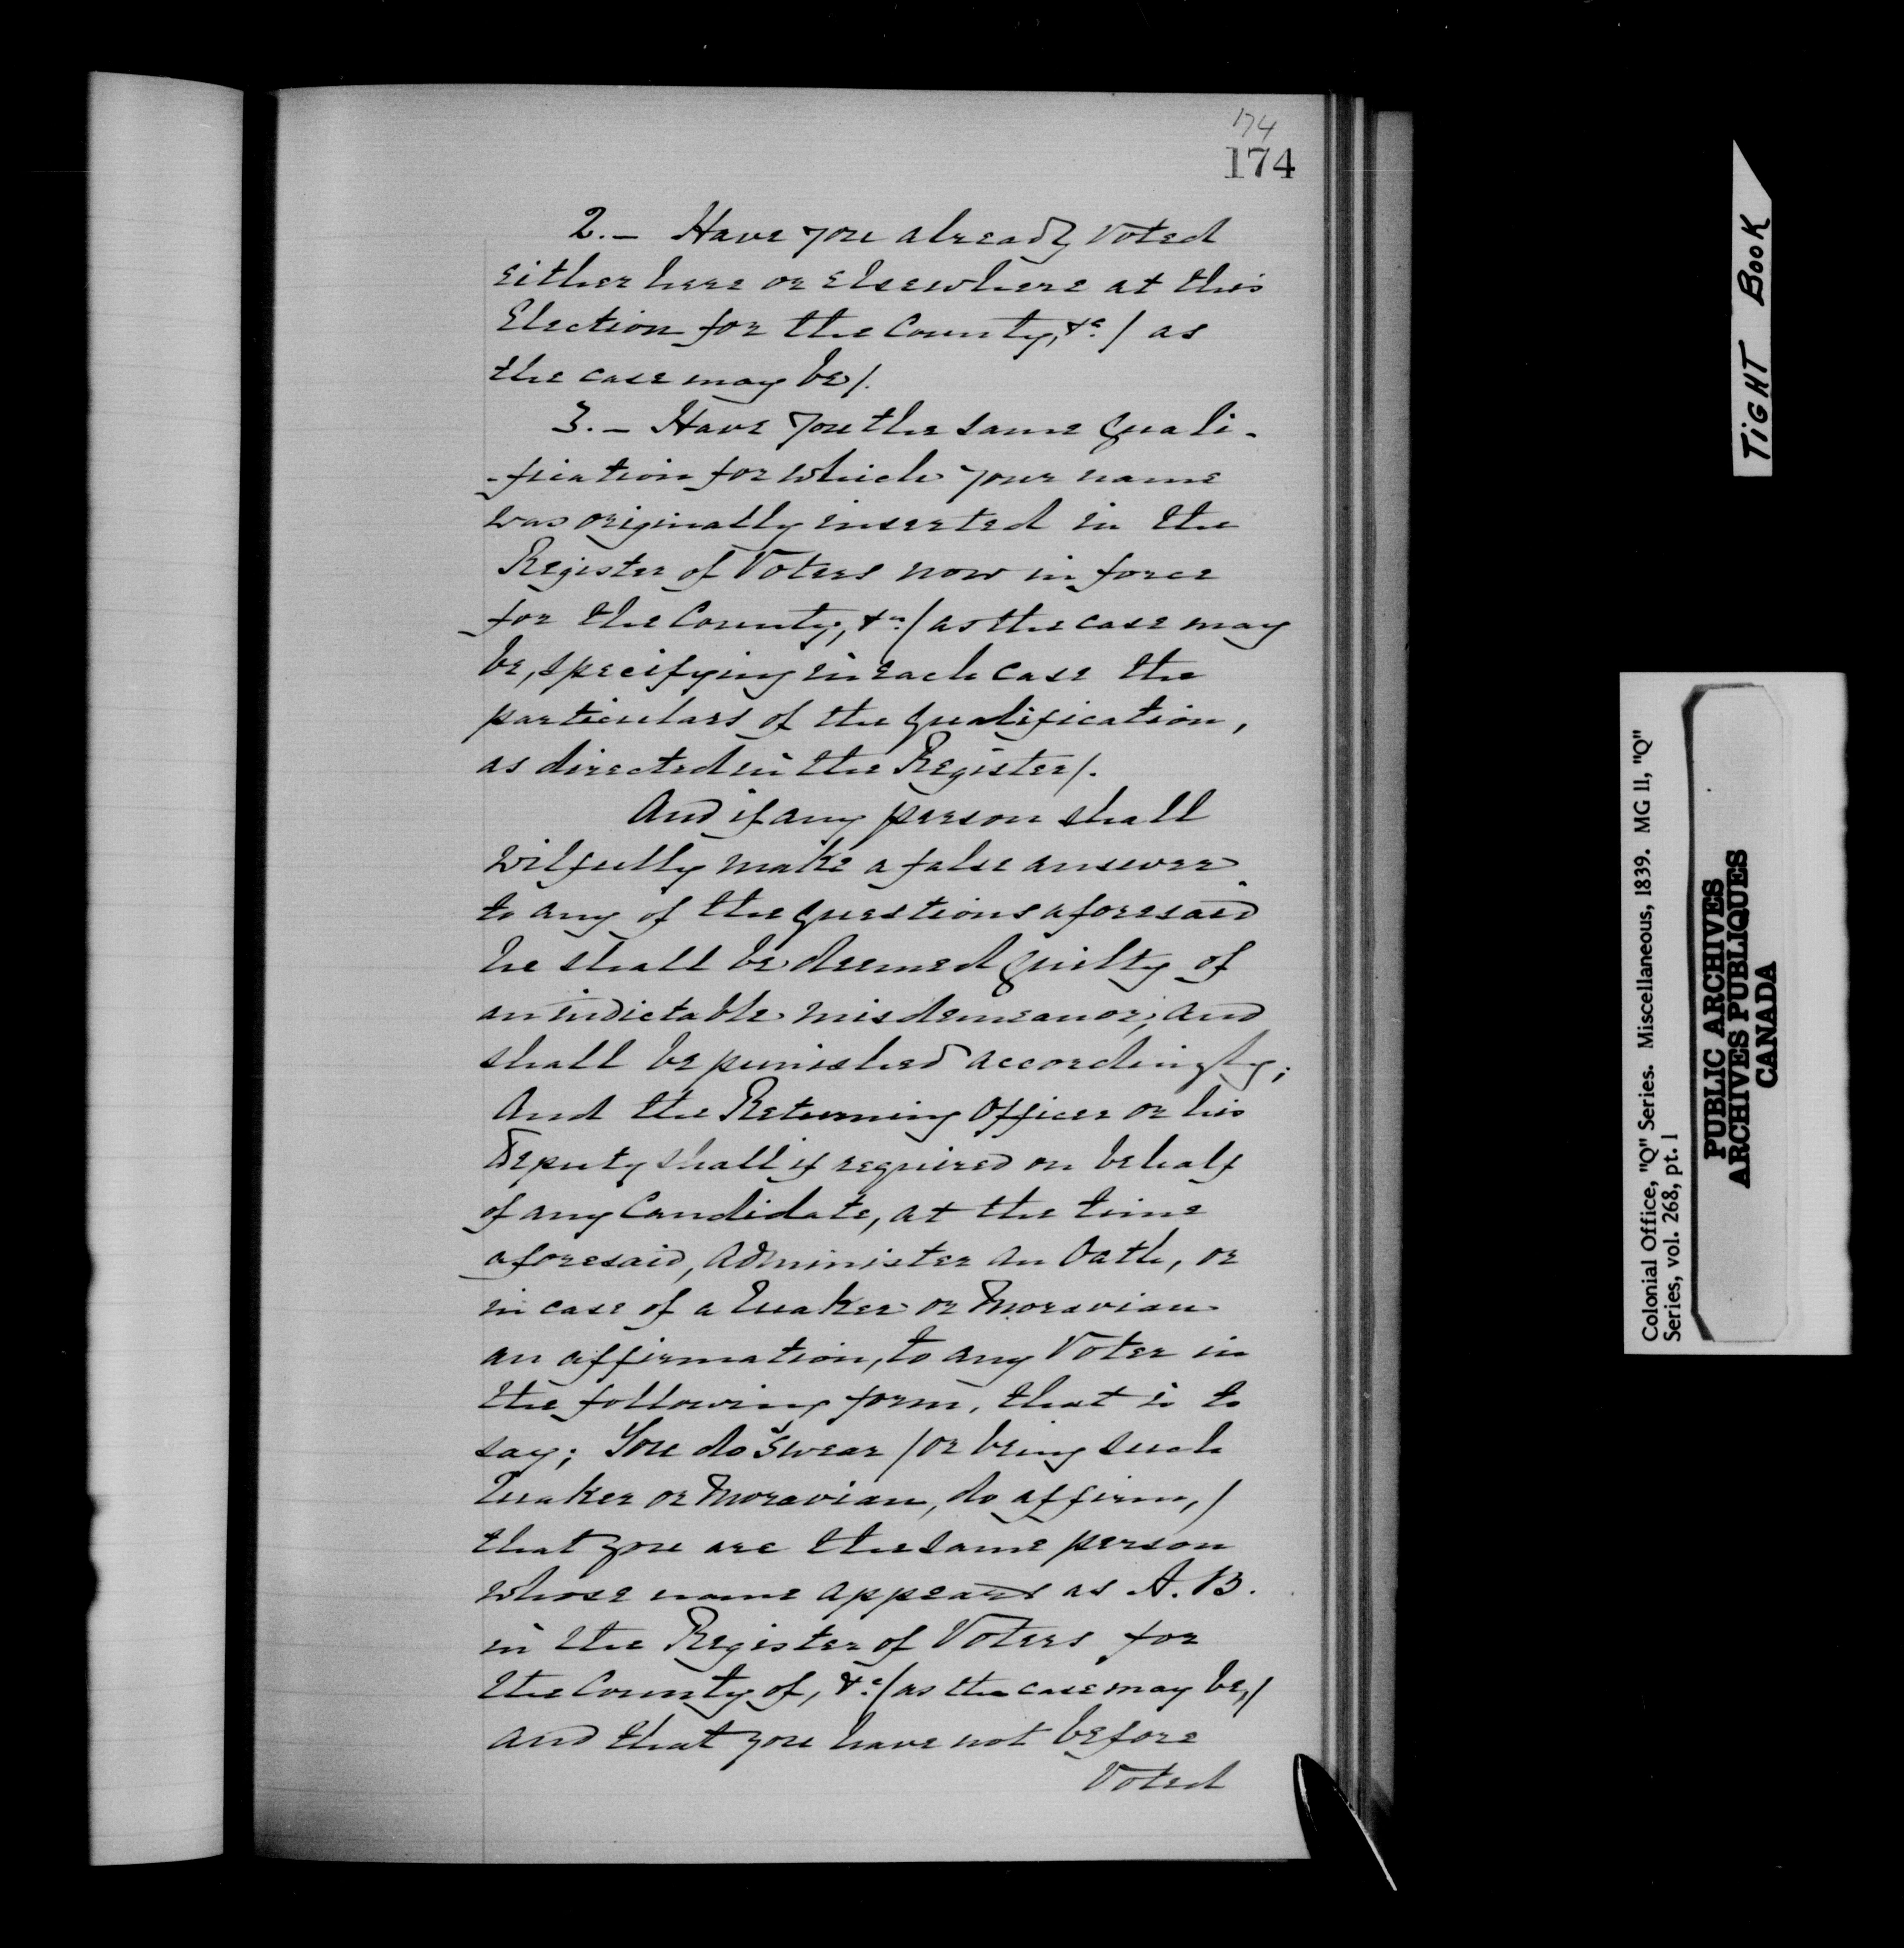 174
174
2. — Have you already Voted
either here or elsewhere at this
Election for the County, &c. / as
the case may be /.
3. — Have you the same quali-
-fication for which your name
was originally inserted in the
Register of Voters now in force
for the County, &c. / as the case may
be, specifying in each case the
particulars of the qualification,
as directed in the Register /.
And if any person shall
wilfully make a false answer
to any of the questions aforesaid
he shall be deemed guilty of
an indictable misdemeanor, and
shall be punished accordingly;
And the Returning Officer or his
Deputy shall if required on behalf
of any Candidate, at the time
aforesaid, administer an Oath, or
in case of a Quaker or Moravian
an affirmation, to any Voter in
the following form, that is to
say; You do swear / or being such
Quaker or Moravian, do affirm, /
that you are the same person
whose name appears as A. B.
in the Register of Voters for
the County of, &c. / as the case may be, /
and that you have not before
Voted
TIGHT BOOK
Colonial Office, "Q" Series. Miscellaneous, 1839. MG 11, "Q"
Series, vol. 268, pt. 1
PUBLIC ARCHIVES
ARCHIVES PUBLIQUES
CANADA